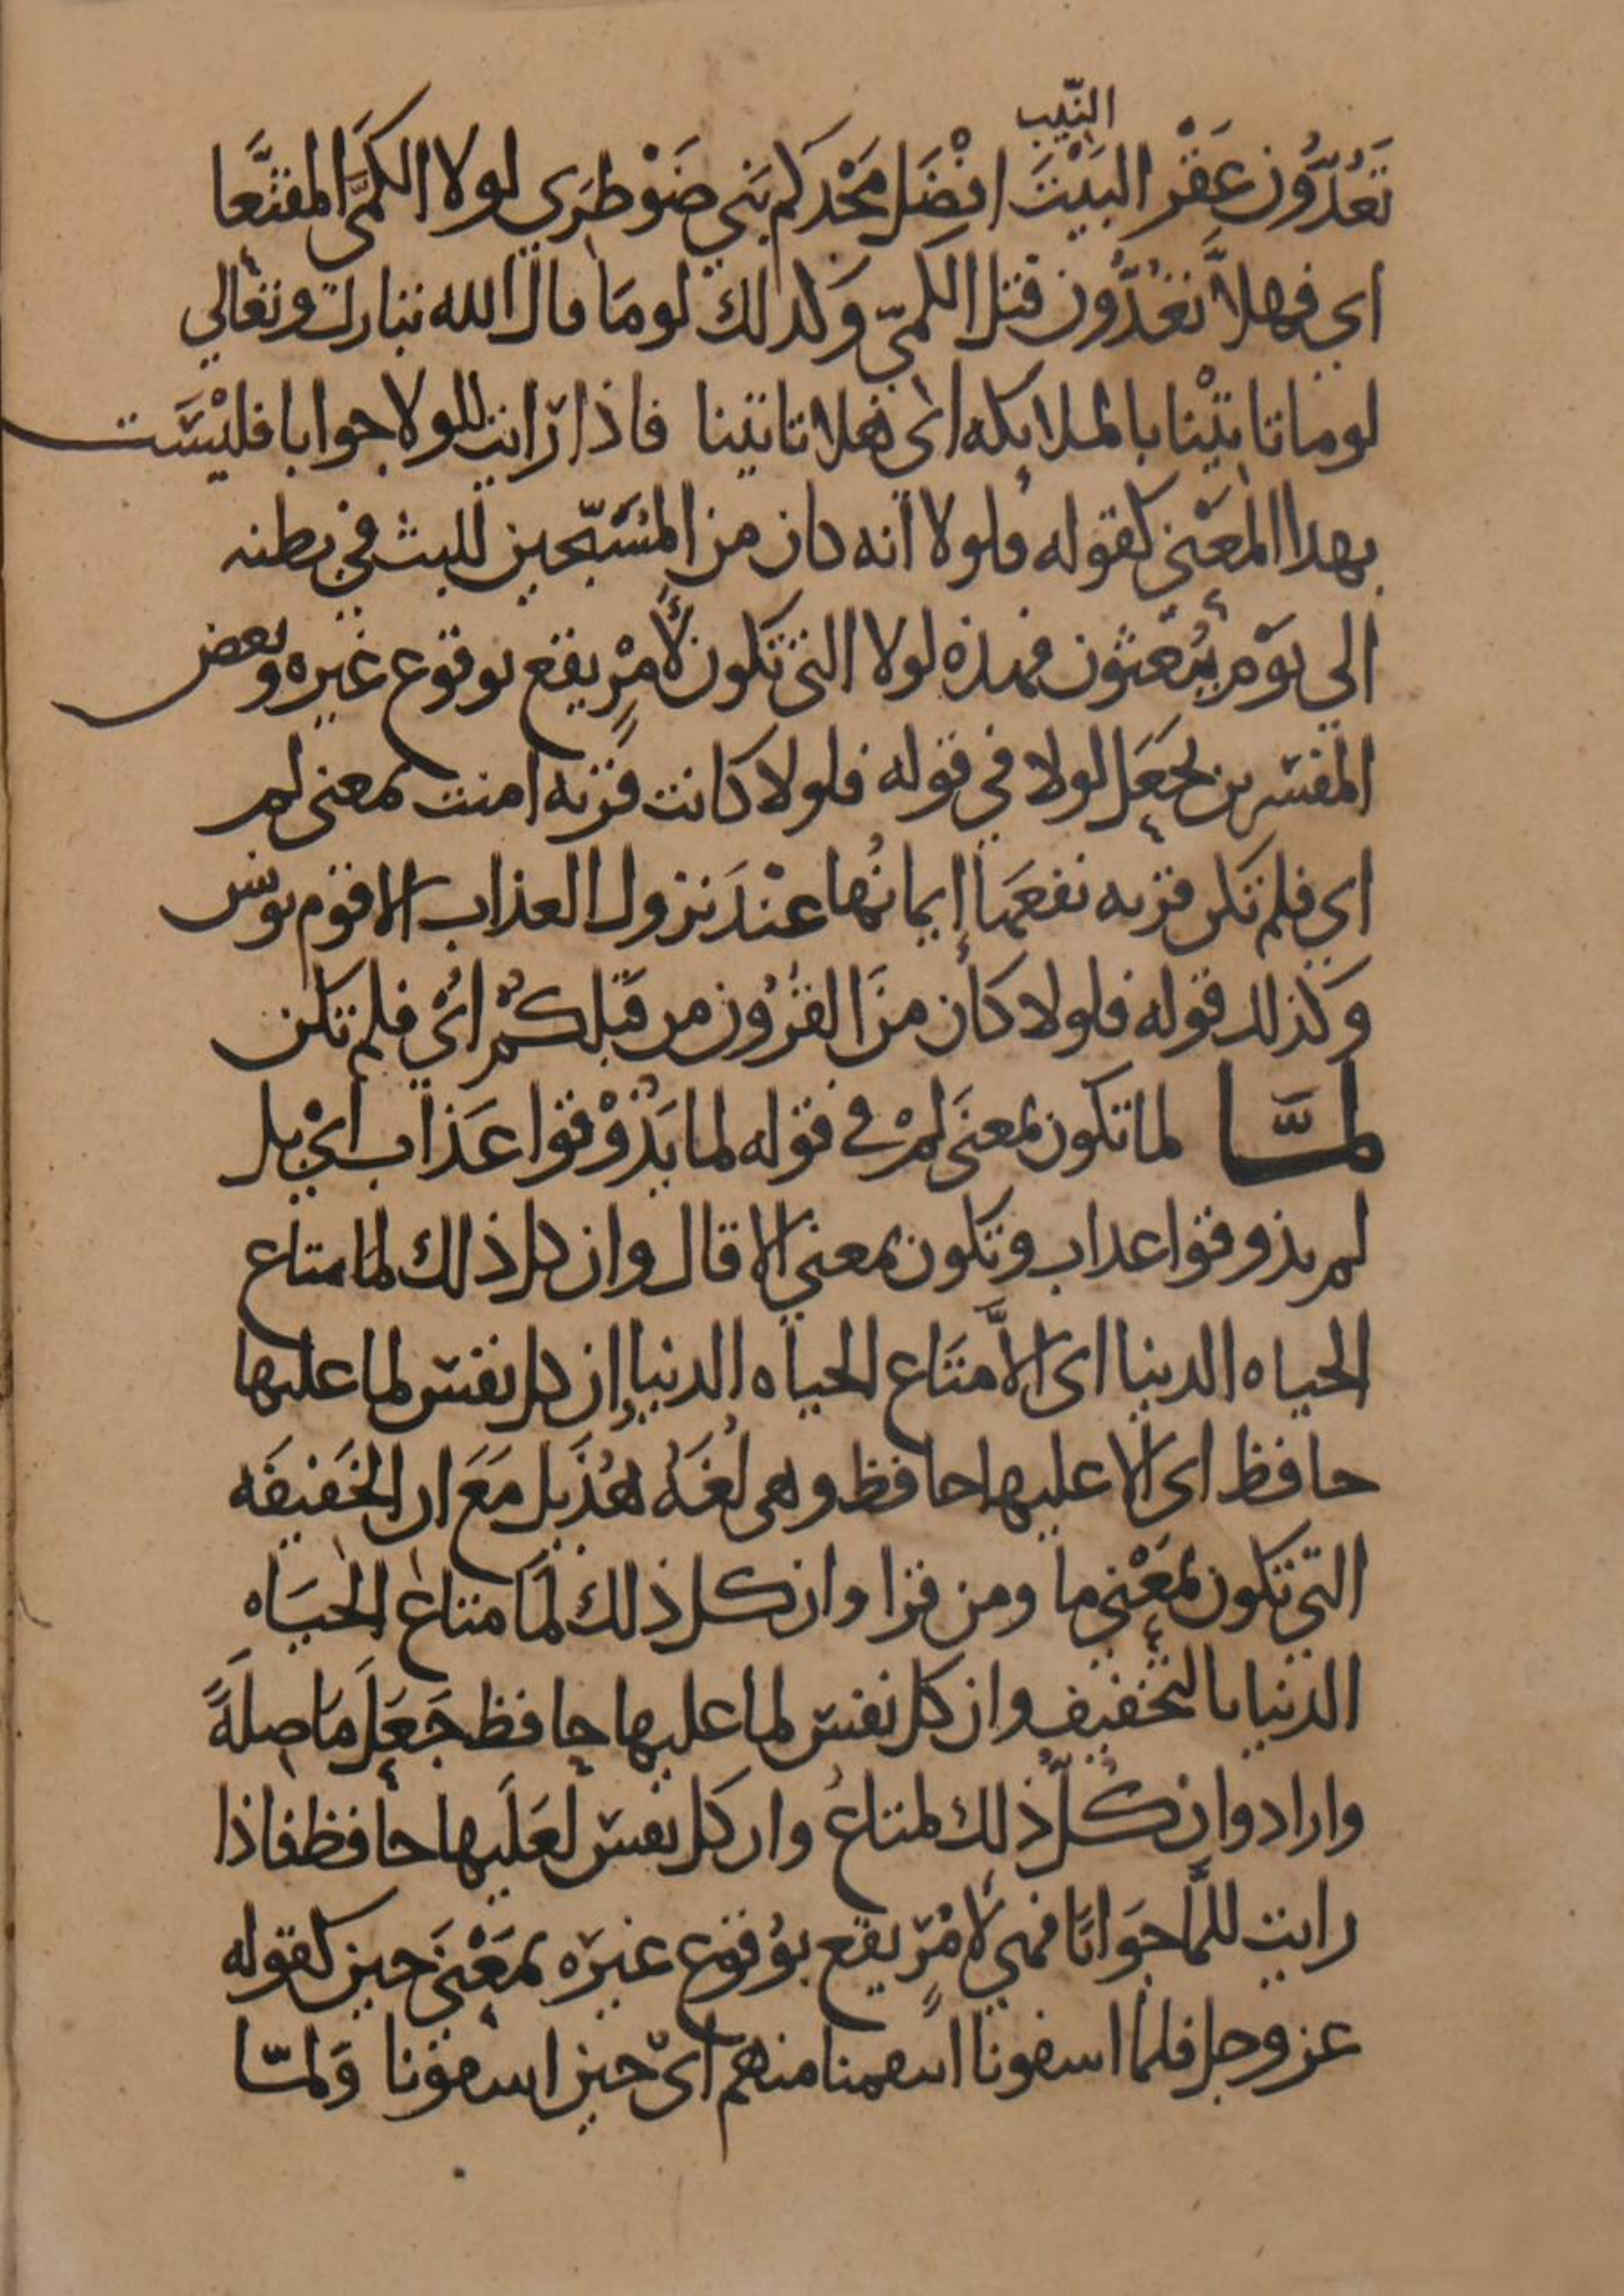 النّيب
تَعُدُّون عَقْر البَيْتَ افْضَل مَجْدكم بَني ضَوْطرَى لولا الكمىَّ المقنَّعا
اي فهلاَّ تعُدُّون قتل الكمىّ وكدلك لومَا قال الله تبارك وتعالي
لوما تاتيْنا بالملايكه اى فهلا تاتينا فاذا رّايت للولا جوابا فليْسَت
بهدا المعْنى كقوله فلولا انه كان من المسَبّحين للبث في بطنه
الى يَوْم يُبْعثون فهذه لولا التى تكون لأمْرٍ يقع بوقوع غيره وبعض
المفسّرين يجعَل لولا في قوله فلولا كانت قريه امنت بمعنى لم
اي فلم تكن قريه نفعَها إيمانُها عنْدَ نزول العذاب الا قوم يونس
وَكذلك قوله فلولا كان منَ القرُون من قبْلكُمْ ائ فلم تكن
لمَّا لما تكون بمعنَى لمْ في قوله لما يَذُوْقوا عَذاب ايْ بل
لم يذوقوا عداب وتكون بمعنى الا قال وان كل ذلك لمَّا متاع
الحياه الدينا اى الاَّ متَاع الحياه الدنيا إن كل نفسٍ لما عليها
حافظ اى الا عليها حافظ وهى لُغَةُ هُذَيل مَعَ ان الخَفيفَه
التي تكون بمَعْني ما ومن قرا وان كل ذلك لمَا متاع الحيَاه
الدنيا بالتخفيف وان كل نفس لما عليها حافظ جَعَلَ مَا صلَةً
واراد وان كُلّ ذلك لمتاعُ وان كل نفس لعَلَيها حافظ فاذا
رايت للمَّا جَوابًا فهي لأمْرٍ يقع بوُقوع غيرْه بمَعْنَى حين كقوله
عز وجل فلمَّا اسفونا انتقمنا منهم اىْ حين اسفونا وَلمّا